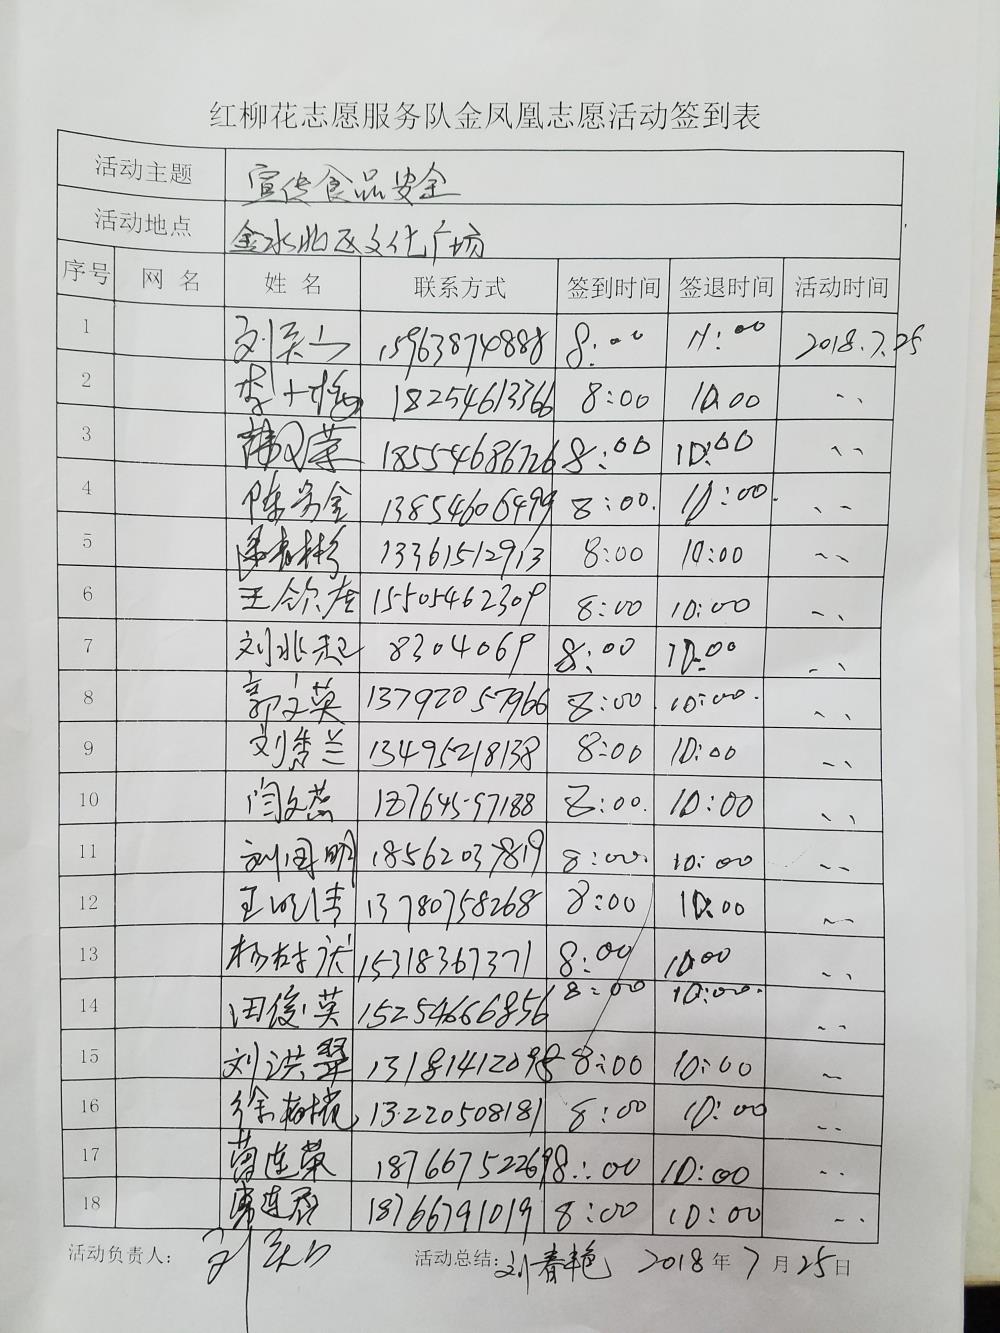 红柳花志愿服务队金凤凰志愿活动签到表
活动主题 宣传食品安全
活动地点 金水 区文化广场
序号 网名 姓名 联系方式 签到时间 签退时间 活动时间
1 刘 15963874888 8:00 11:00 2018.7.25
2 李 18254613366 8:00 10:00 、、
3 韩 荣 18554686726 8:00 10:00 、、
4 陈 金 13854606499 8:00. 10:00. 、、
5 彬 13361512913 8:00 10:00 、、
6 王 15505462309 8:00 10:00 、、
7 刘 起 8304069 8:00 10:00 、、
8 郭文英 13792057966 8:00. 10:00. 、、
9 刘秀兰 13495218138 8:00 10:00 、、
10 闫文燕 13764597188 8:00. 10:00 、、
11 刘国明 18562037819 8:00. 10:00 、、
12 王 清 13780758268 8:00 10:00 、、
13 杨 庆 15318367371 8:00 10:00 、、
14 田俊英 15254666856 8:00 10:00. 、、
15 刘洪翠 1318141209 8:00 10:00 、、
16 徐 13220508181 8:00 10:00 、、
17 连荣 18766752269 8:00 10:00 、、
18 连 18766791019 8:00 10:00 、、
活动负责人: 刘 活动总结: 刘春艳 2018年7月25日